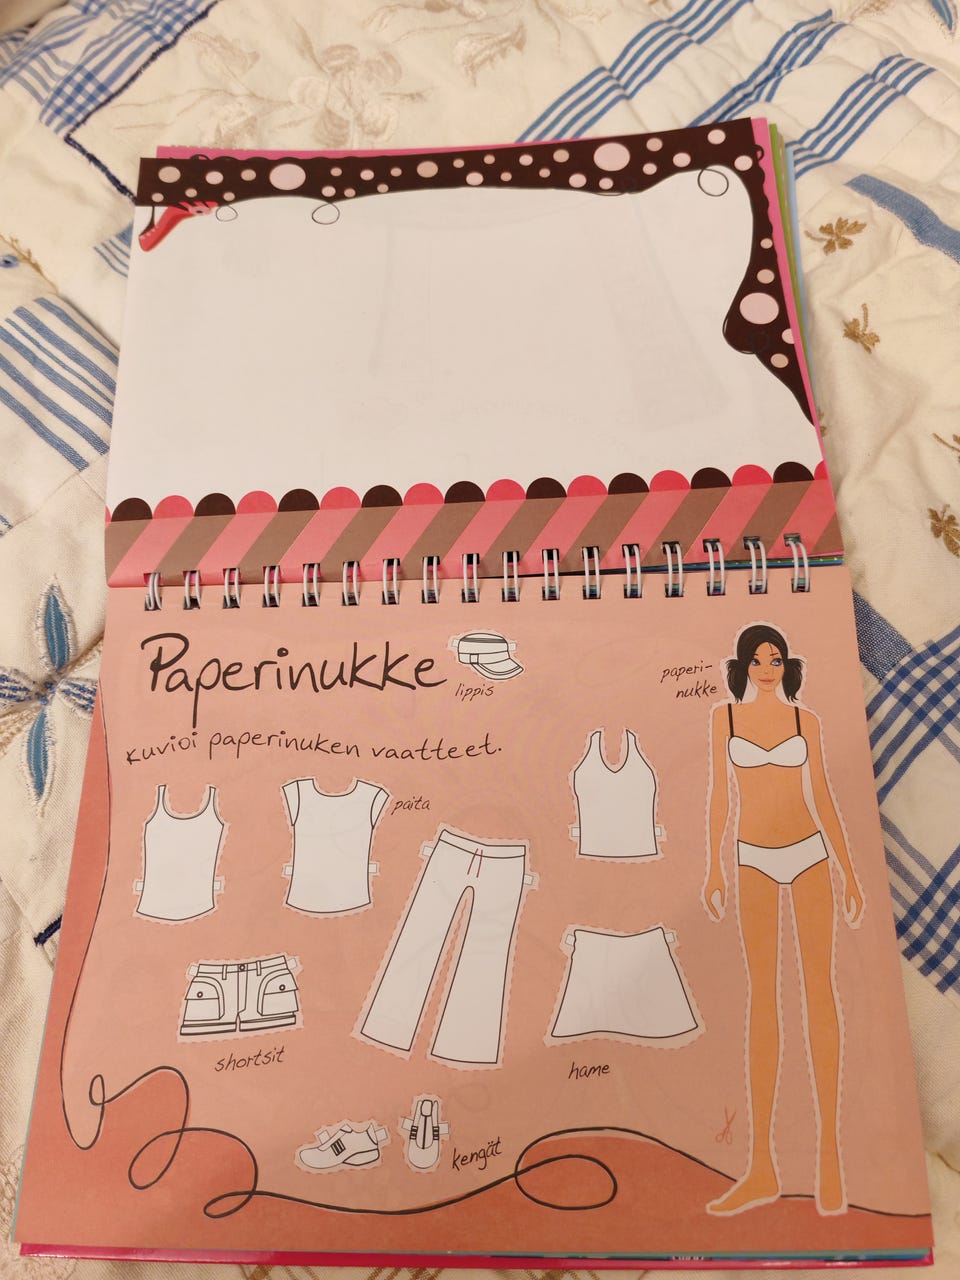 Paperinukke
lippis
paperi-
nukke
kuvioi paperinuken vaatteet.
paita
shortsit
hame
kengät